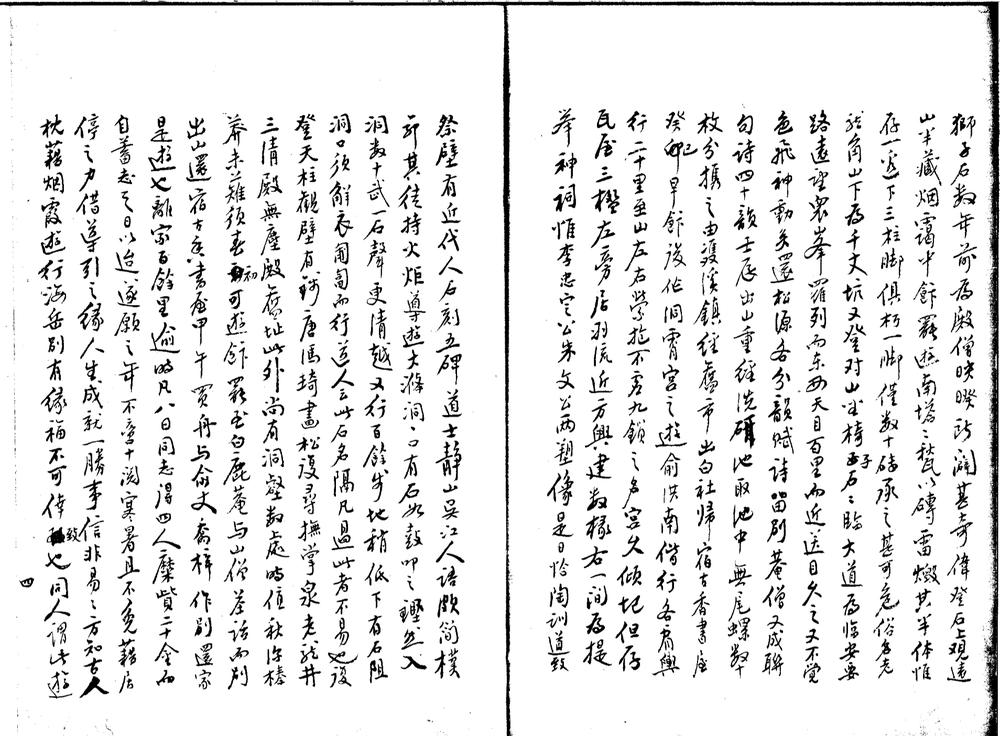 獅子石數年前為殿僧映暌所闢甚奇偉登石上覌遠
山半藏烟靄中飰罷遊南塔々甃以磚雷燬其半体惟
存一邊下三柱脚俱朽一脚僅數十磚承之甚可危俗名老
龍角山下為千丈坑又登對山坐椅子石々臨大道為臨安要
路遠望衆峯羅列而东西天目百里而近送目久之又不覺
色飛神動矣還松源各分韻賦詩留别菴僧又成聨
句詩四十韻壬辰出山重經洗硯池取池中無尾螺數
枚分攜之由護溪鎮經舊市出白社歸宿古香書屋
癸巳早飰後作洞霄宫之遊俞洪南偕行各肩輿
行二十里至山左右縈拖不虛九鎖之名宫久傾圮但存
瓦屋三楹左旁居羽流近方興建數椽右一間為提
舉神祠惟李忠定公朱文公两塑像是日恰陶訓道致
祭壁有近代人石刻五碑道士靜山吳江人語頗簡樸
即其徒持火炬導遊大滌洞々口有石如鼓叩之鏗然入
洞數十武一石聲更清越又行百餘步地稍低下有石阻
洞口須解衣匍匐而行道人云此石名隔凡過此者不易也後
登天柱觀壁有錢唐馮琦畫松復尋撫掌泉老龍井
三清殿無塵殿舊址此外尚有洞壑數處時值秋深榛
莽未薙須春初可遊飰罷至白鹿菴与山僧茶話而别
出山還宿古香書屋甲午買舟与俞丈喬梓作别還家
是遊也離家百餘里逾時凡八日同志得四人縻貲二十金而
自蓄志之日以迨遂願之年不啻十閲寒暑且不免藉居
停之力借導引之緣人生成就一勝事信非易々方知古人
枕藉烟霞遊行海岳别有緣福不可倖致也同人謂此遊
四